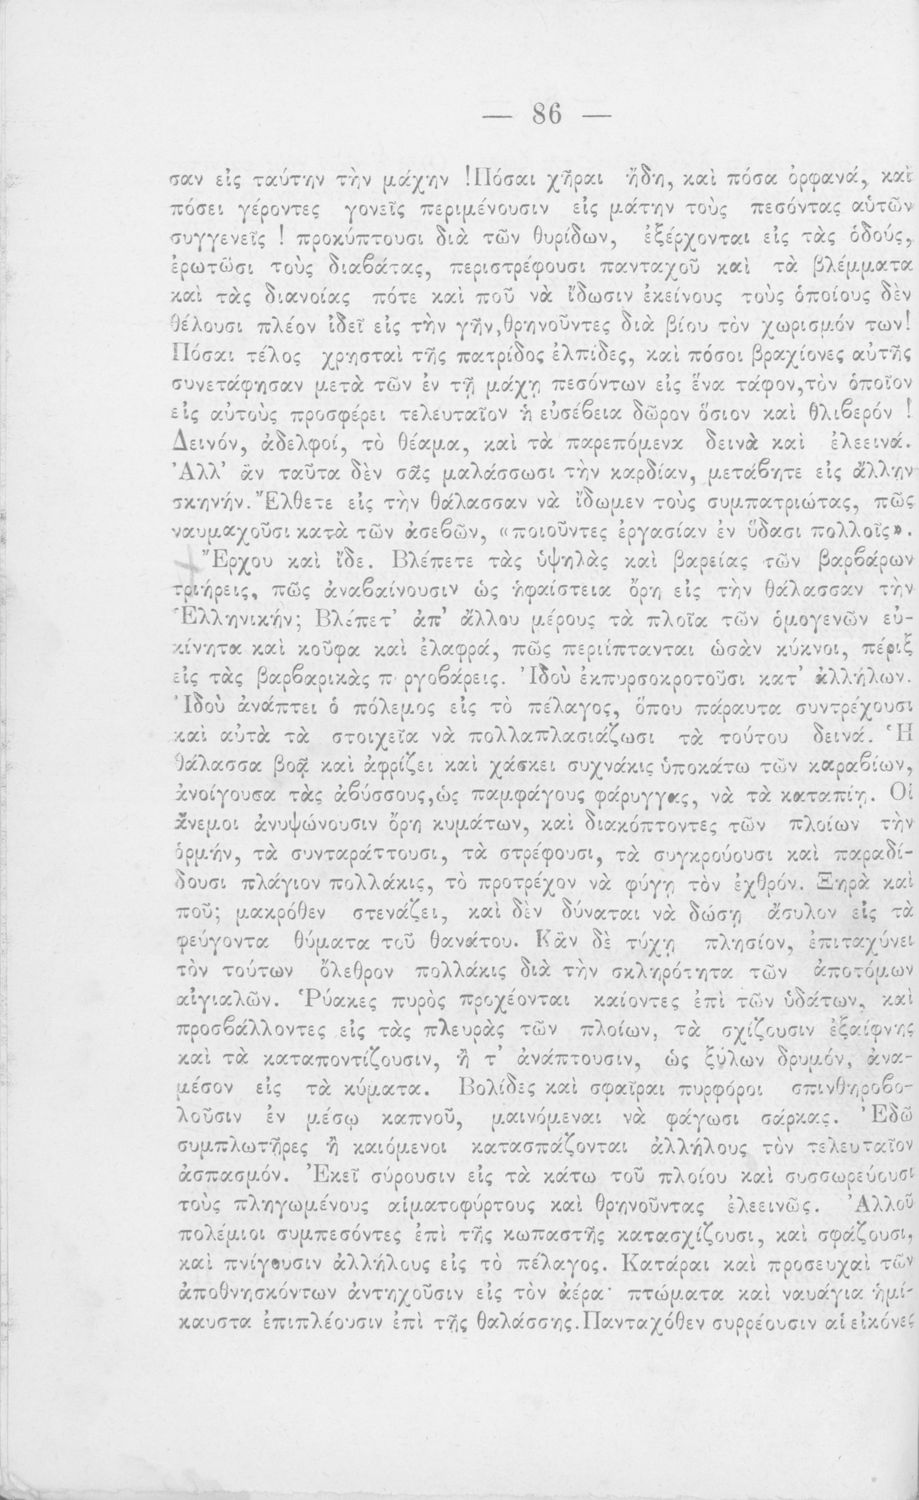 — 86 —
σαν εἰς ταύτην τὴν μάχην !Πόσαι χῆραι ἤδη, καὶ πόσα ὀρφανά, καὶ
πόσει γέροντες γονεῖς περιμένουσιν εἰς μάτην τοὺς πεσόντας αὑτῶν
συγγενεῖς ! προκύπτουσι διὰ τῶν θυρίδων, ἐξέρχονται εἰς τὰς ὁδούς,
ἐρωτῶσι τοὺς διαβάτας, περιστρέφουσι πανταχοῦ καὶ τὰ βλέμματα
καὶ τὰς διανοίας πότε καὶ ποῦ νὰ ἴδωσιν ἐκείνους τοὺς ὁποίους δὲν
θέλουσι πλέον ἰδεῖ εἰς τὴν γῆν,θρηνοῦντες διὰ βίου τὸν χωρισμόν των!
Πόσαι τέλος χρησταὶ τῆς πατρίδος ἐλπίδες, καὶ πόσοι βραχίονες αὐτῆς
συνετάφησαν μετὰ τῶν ἐν τῇ μάχῃ πεσόντων εἰς ἕνα τάφον,τὸν ὁποῖον
εἰς αὐτοὺς προσφέρει τελευταῖον ἡ εὐσέβεια δῶρον ὅσιον καὶ θλιβερόν !
Δεινόν, ἀδελφοί, τὸ θέαμα, καὶ τὰ παρεπόμενα δεινὰ καὶ ἐλεεινά.
Ἀλλ’ ἂν ταῦτα δὲν σᾶς μαλάσσωσι τὴν καρδίαν, μετάβητε εἰς ἄλλην
σκηνήν. Ἔλθετε εἰς τὴν θάλασσαν νὰ ἴδωμεν τοὺς συμπατριώτας, πῶς
ναυμαχοῦσι κατὰ τῶν ἀσεβῶν, «ποιοῦντες ἐργασίαν ἐν ὕδασι πολλοῖς».
Ἔρχου καὶ ἴδε. Βλέπετε τὰς ὑψηλὰς καὶ βαρείας τῶν βαρβάρων
τριήρεις, πῶς ἀναβαίνουσιν ὡς ἡφαίστεια ὄρη εἰς τὴν θάλασσαν τὴν
Ἑλληνικήν; Βλέπετ’ ἀπ’ ἄλλου μέρους τὰ πλοῖα τῶν ὁμογενῶν εὐ-
κίνητα καὶ κοῦφα καὶ ἐλαφρά, πῶς περιίπτανται ὡσὰν κύκνοι, πέριξ
εἰς τὰς βαρβαρικὰς π ργοβάρεις. Ἰδοὺ ἐκπυρσοκροτοῦσι κατ’ ἀλλήλων.
Ἰδοὺ ἀνάπτει ὁ πόλεμος εἰς τὸ πέλαγος, ὅπου πάραυτα συντρέχουσι
καὶ αὐτὰ τὰ στοιχεῖα νὰ πολλαπλασιάζωσι τὰ τούτου δεινά. Ἡ
θάλασσα βοᾷ καὶ ἀφρίζει καὶ χάσκει συχνάκις ὑποκάτω τῶν καραβίων,
ἀνοίγουσα τὰς ἀβύσσους,ὡς παμφάγους φάρυγγας, νὰ τὰ καταπίῃ. Οἱ
ἄνεμοι ἀνυψώνουσιν ὄρη κυμάτων, καὶ διακόπτοντες τῶν πλοίων τὴν
ὁρμήν, τὰ συνταράττουσι, τὰ στρέφουσι, τὰ συγκρούουσι καὶ παραδί-
δουσι πλάγιον πολλάκις, τὸ προτρέχον νὰ φύγῃ τὸν ἐχθρόν. Ξηρὰ καὶ
ποῦ; μακρόθεν στενάζει, καὶ δὲν δύναται νὰ δώσῃ ἄσυλον εἰς τὰ
φεύγοντα θύματα τοῦ θανάτου. Κἂν δὲ τύχῃ πλησίον, ἐπιταχύνει
τὸν τούτων ὄλεθρον πολλάκις διὰ τὴν σκληρότητα τῶν ἀποτόμων
αἰγιαλῶν. Ῥύακες πυρὸς προχέονται καίοντες ἐπὶ τῶν ὑδάτων, καὶ
προσβάλλοντες εἰς τὰς πλευρὰς τῶν πλοίων, τὰ σχίζουσιν ἐξαίφνης
καὶ τὰ καταποντίζουσιν, ἢ τ’ ἀνάπτουσιν, ὡς ξύλων δρυμόν, ἀνα-
μέσον εἰς τὰ κύματα. Βολίδες καὶ σφαῖραι πυρφόροι σπινθηροβο-
λοῦσιν ἐν μέσῳ καπνοῦ, μαινόμεναι νὰ φάγωσι σάρκας. Ἐδῶ
συμπλωτῆρες ἢ καιόμενοι κατασπάζονται ἀλλήλους τὸν τελευταῖον
ἀσπασμόν. Ἐκεῖ σύρουσιν εἰς τὰ κάτω τοῦ πλοίου καὶ συσσωρεύουσι
τοὺς πληγωμένους αἱματοφύρτους καὶ θρηνοῦντας ἐλεεινῶς. Ἀλλοῦ
πολέμιοι συμπεσόντες ἐπὶ τῆς κωπαστῆς κατασχίζουσι, καὶ σφάζουσι,
καὶ πνίγουσιν ἀλλήλους εἰς τὸ πέλαγος. Κατάραι καὶ προσευχαὶ τῶν
ἀποθνησκόντων ἀντηχοῦσιν εἰς τὸν ἀέρα· πτώματα καὶ ναυάγια ἡμί-
καυστα ἐπιπλέουσιν ἐπὶ τῆς θαλάσσης.Πανταχόθεν συρρέουσιν αἱ εἰκόνες